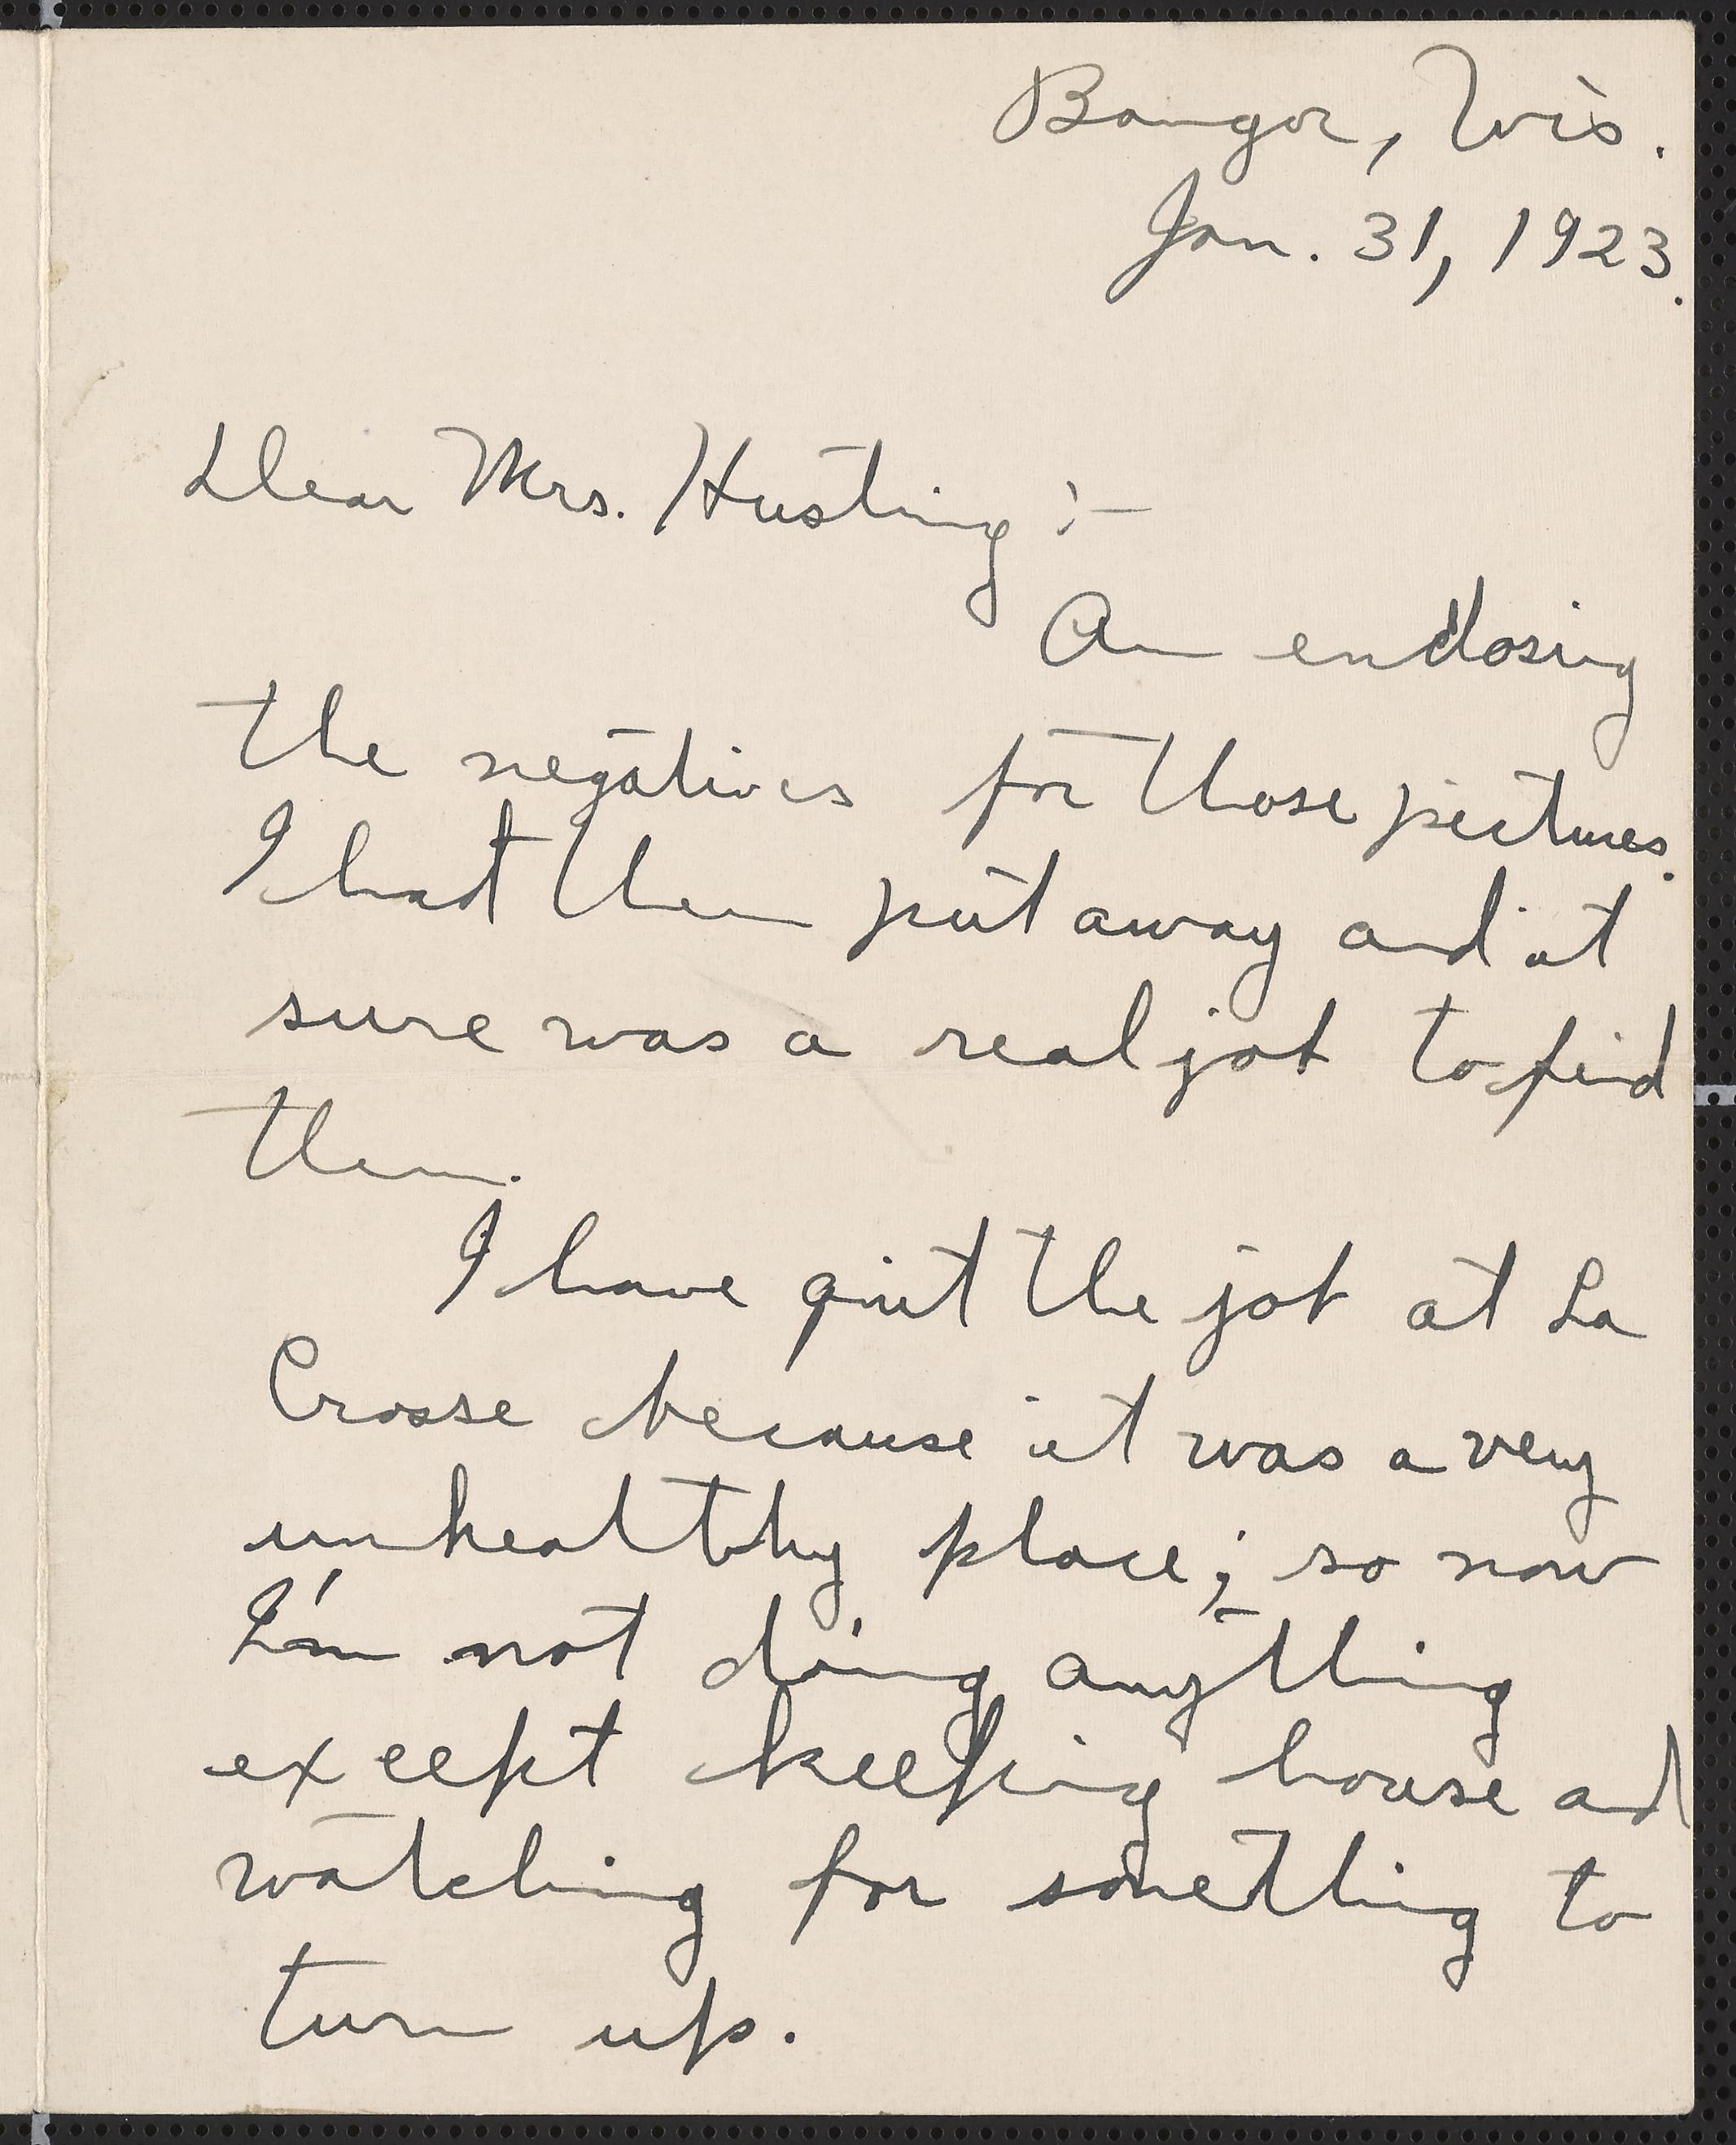 Bangor, Wis.
Jan. 31, 1923.
Dear Mrs. Husting :-
Am enclosing
the negatives for those pictures.
I had them put away and it
sure was a real job to find
them.
I have quit the job at La
Crosse because it was a very
unhealthy place; so now
I'm not doing anything
except keeping house and
watching for something to
turn up.